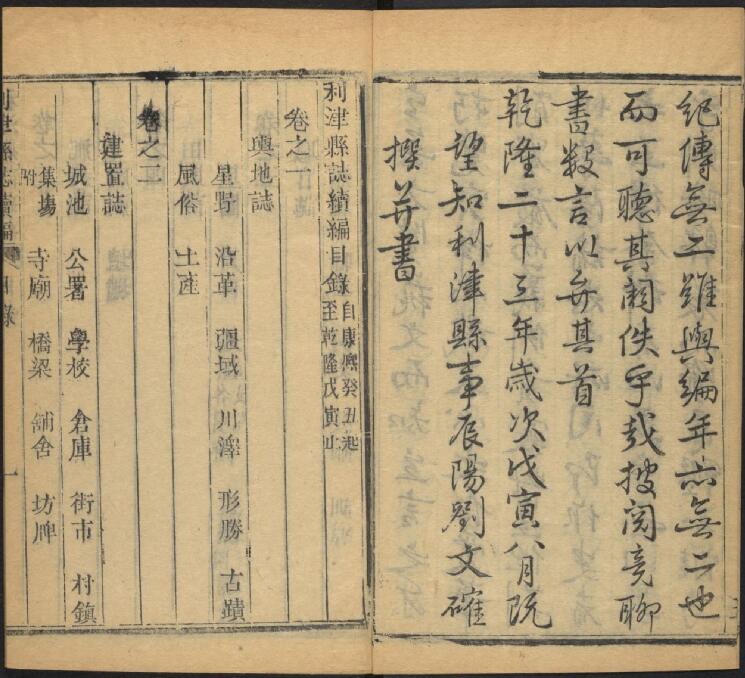 紀傳無二雖與編年亦無二也
而可聽其闕佚乎哉披閱竟聊
書數言以弁其首
乾隆二十三年歲次戊寅八月既
望知利津縣事辰陽劉文確
撰并書
利津縣誌續編目錄 自康熙癸丑起 至乾隆戊寅止
卷之一
輿地誌
星野 沿革 疆域 川澤 形勝 古蹟
風俗 土產
卷之二
建置誌
城池 公署 學校 倉庫 街市 村鎮
集場 附 寺廟 橋梁 舖舍 坊牌
利津縣誌續編 目錄 一